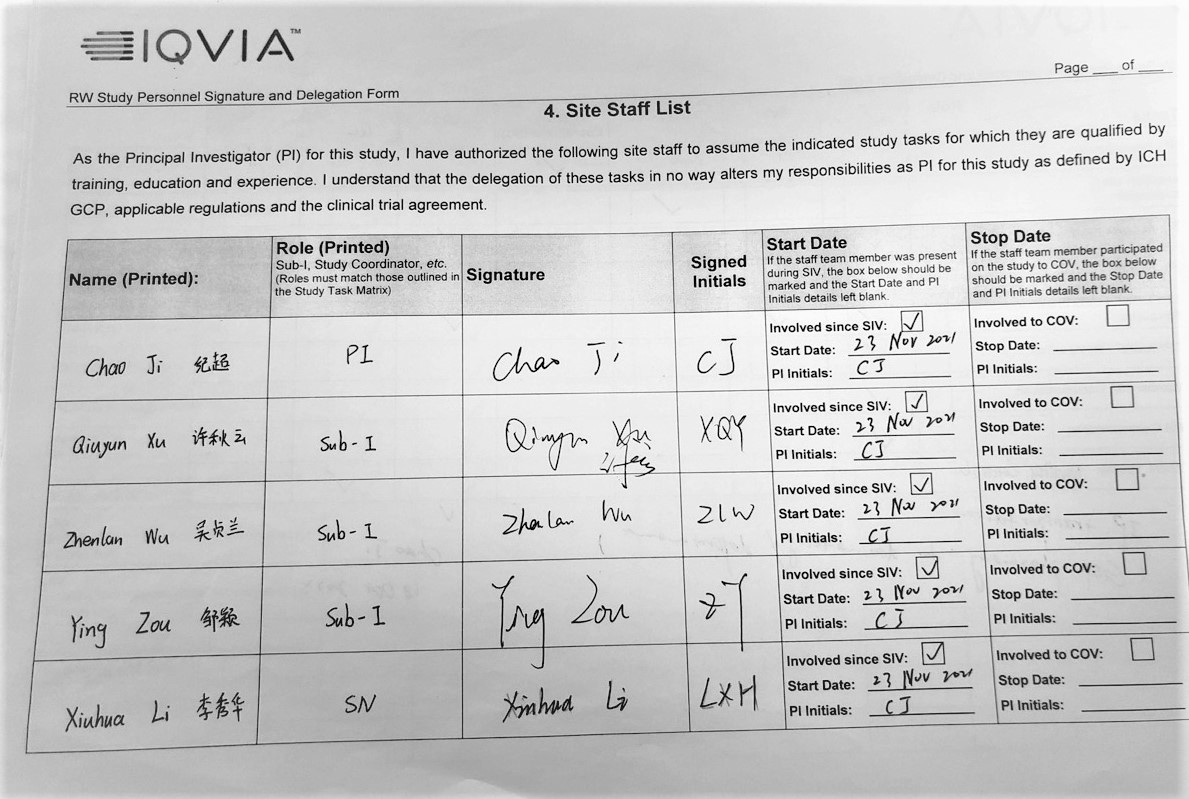 IQVIA™
Page ___ of ___
RW Study Personnel Signature and Delegation Form
4. Site Staff List
As the Principal Investigator (PI) for this study, I have authorized the following site staff to assume the indicated study tasks for which they are qualified by
training, education and experience. I understand that the delegation of these tasks in no way alters my responsibilities as PI for this study as defined by ICH
GCP, applicable regulations and the clinical trial agreement.
Name (Printed):
Role (Printed)
Sub-I, Study Coordinator, etc.
(Roles must match those outlined in
the Study Task Matrix)
Signature
Signed
Initials
Start Date
If the staff team member was present
during SIV, the box below should be
marked and the Start Date and PI
Initials details left blank.
Stop Date
If the staff team member participated
on the study to COV, the box below
should be marked and the Stop Date
and PI Initials details left blank.
Chao Ji 纪超
PI
Chao Ji
CJ
Involved since SIV: ✓
Start Date: 23 Nov 2021
PI Initials: CJ
Involved to COV:
Stop Date:
PI Initials:
Qiuyun Xu 许秋云
Sub-I
Qiuyun Xu
XQY
Involved since SIV: ✓
Start Date: 23 Nov 2021
PI Initials: CJ
Involved to COV:
Stop Date:
PI Initials:
Zhenlan Wu 吴贞兰
Sub-I
Zhenlan Wu
ZLW
Involved since SIV: ✓
Start Date: 23 Nov 2021
PI Initials: CJ
Involved to COV:
Stop Date:
PI Initials:
Ying Zou 邹颖
Sub-I
Ying Zou
ZY
Involved since SIV: ✓
Start Date: 23 Nov 2021
PI Initials: CJ
Involved to COV:
Stop Date:
PI Initials:
Xiuhua Li 李秀华
SN
Xiuhua Li
LXH
Involved since SIV: ✓
Start Date: 23 Nov 2021
PI Initials: CJ
Involved to COV:
Stop Date:
PI Initials: